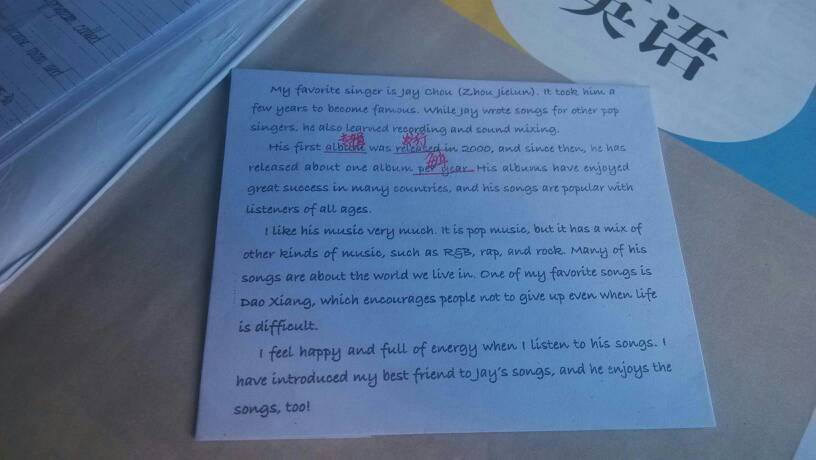 英语
My favorite singer is Jay Chou (Zhou Jielun). It took him a
few years to become famous. While Jay wrote songs for other pop
singers, he also learned recording and sound mixing.
专辑 发行
His first album was released in 2000, and since then, he has
每年
released about one album per year. His albums have enjoyed
great success in many countries, and his songs are popular with
listeners of all ages.
I like his music very much. It is pop music, but it has a mix of
other kinds of music, such as R&B, rap, and rock. Many of his
songs are about the world we live in. One of my favorite songs is
Dao Xiang, which encourages people not to give up even when life
is difficult.
I feel happy and full of energy when I listen to his songs. I
have introduced my best friend to Jay's songs, and he enjoys the
songs, too!